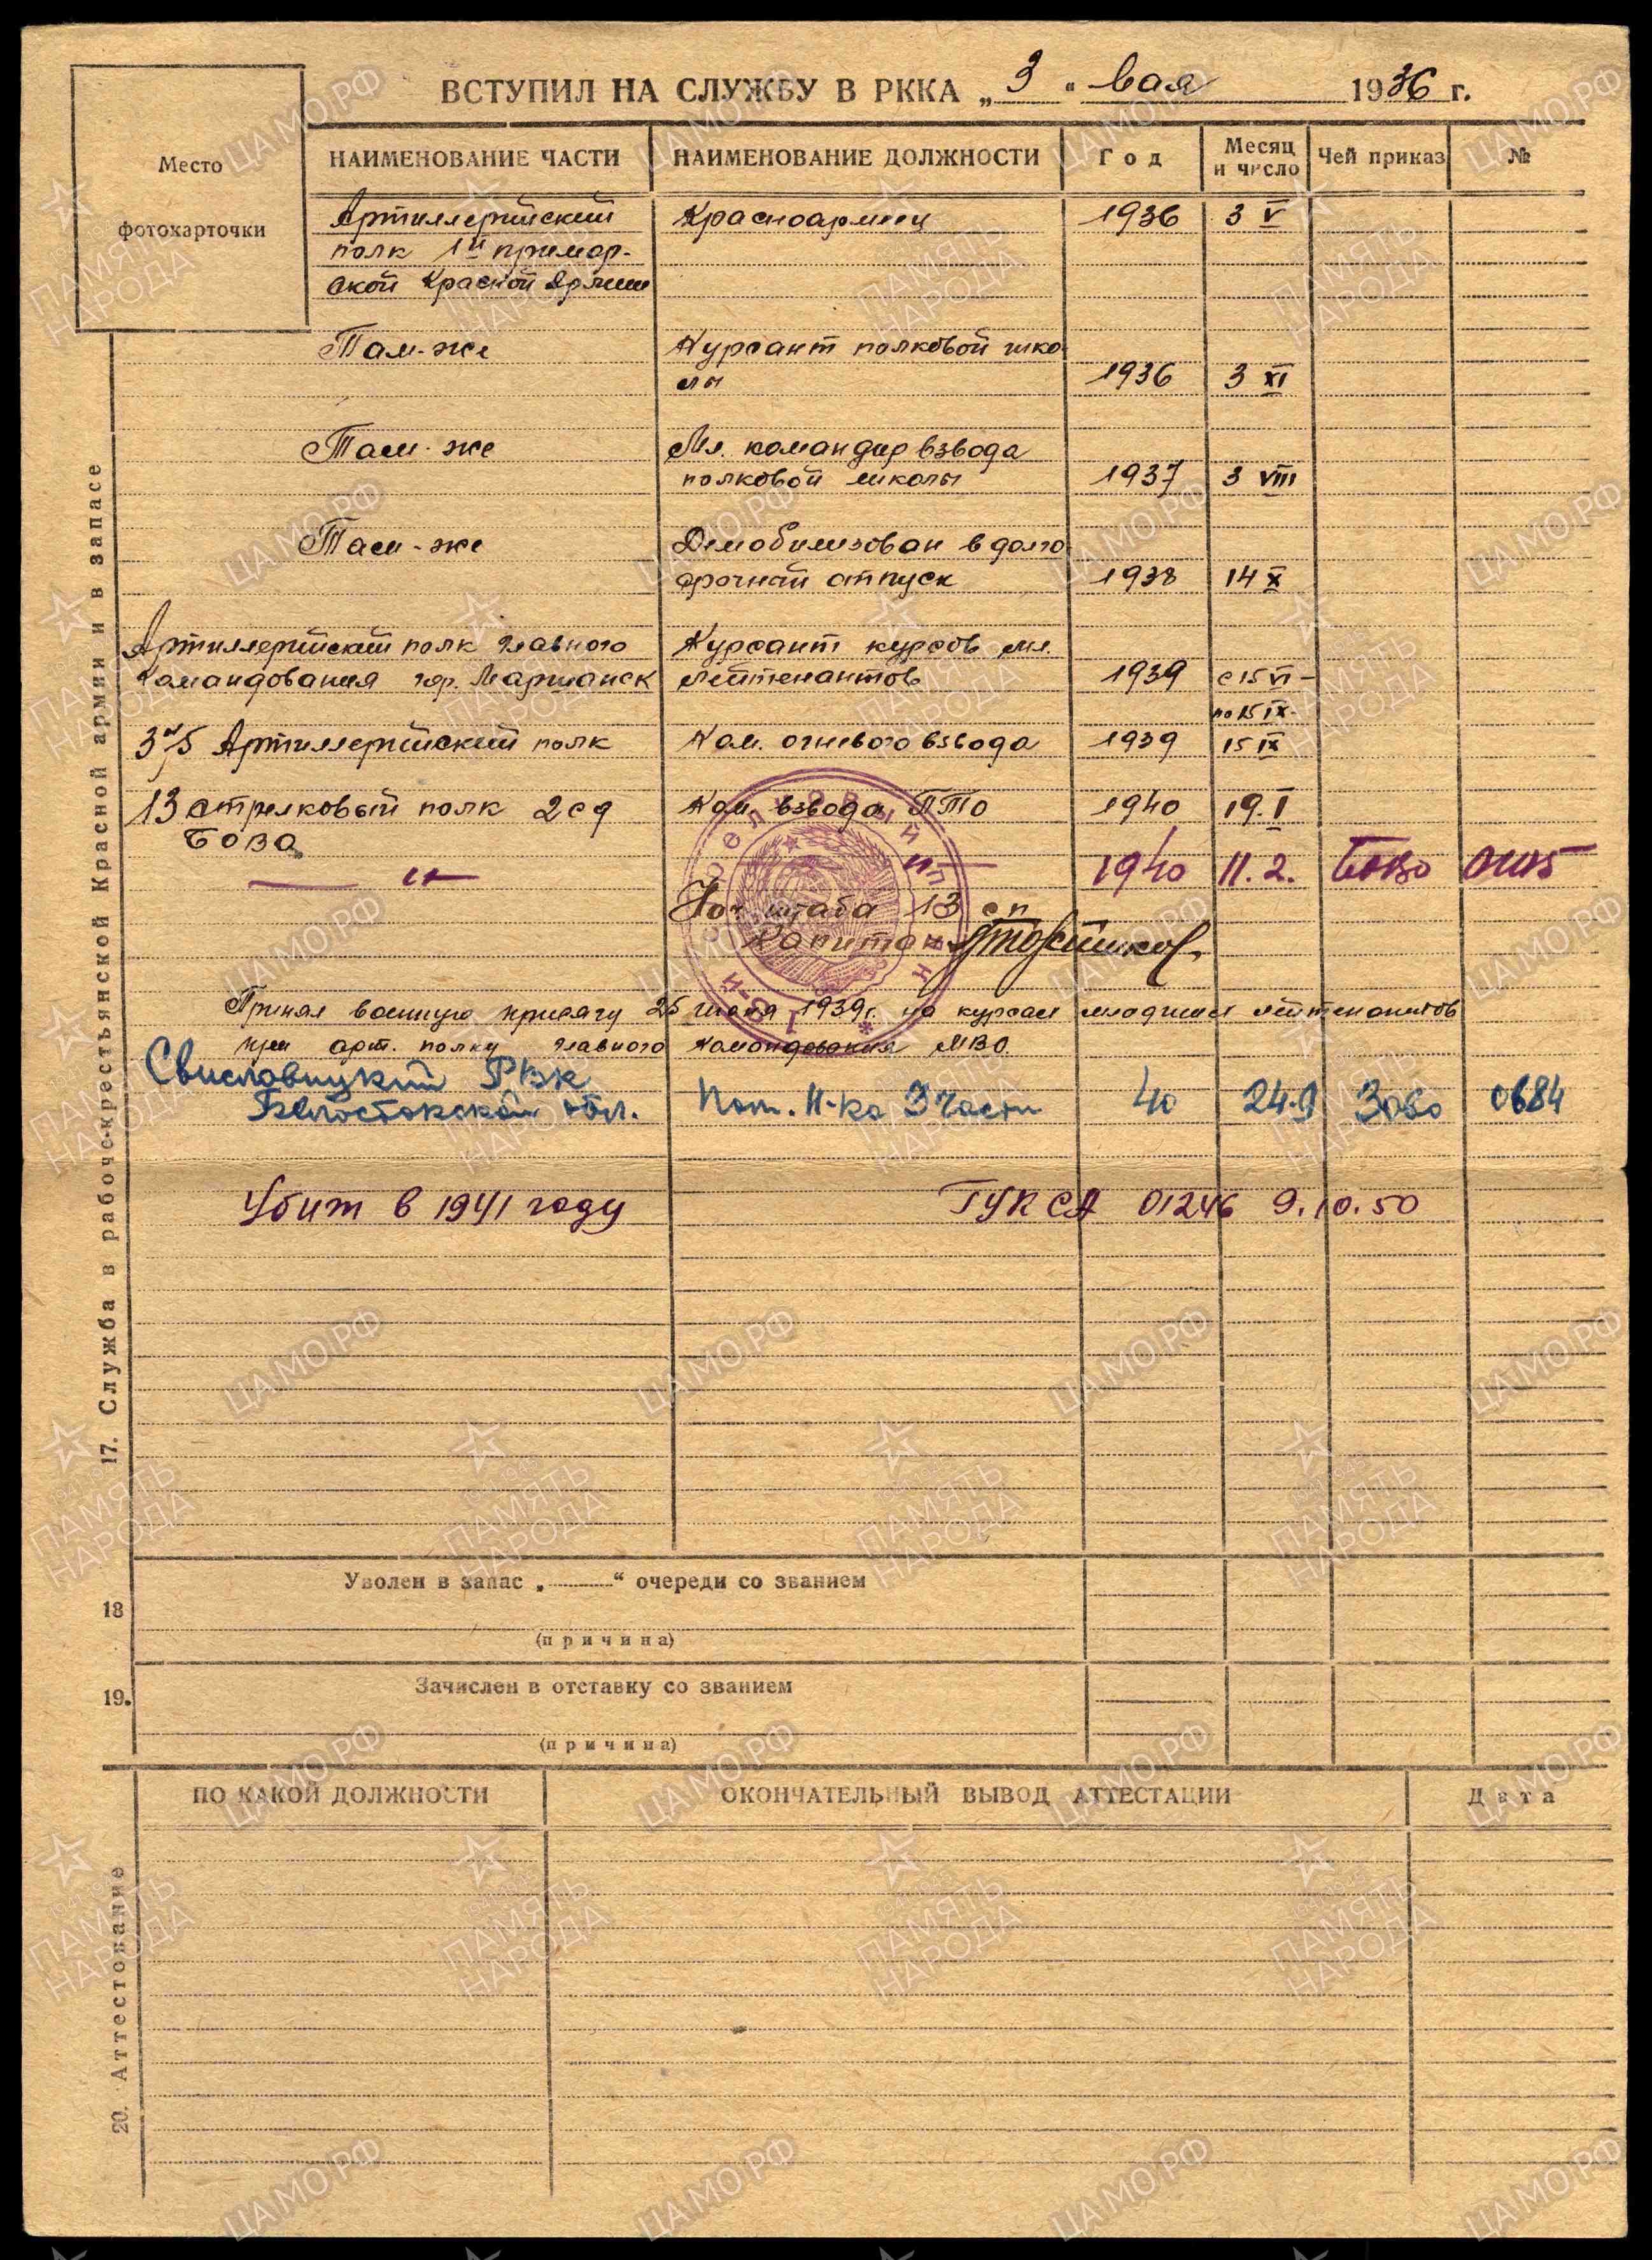 ВСТУПИЛ НА СЛУЖБУ В РККА „3“ мая 1936 г.
Место
фотокарточки
НАИМЕНОВАНИЕ ЧАСТИ НАИМЕНОВАНИЕ ДОЛЖНОСТИ Год Месяц и число Чей приказ №
Артиллерийский Красноармеец 1936 3 V
полк 1й примор-
ской Красной Армии
Там-же Курсант полковой шко-
лы 1936 3 XI
Там-же Мл. командир взвода
полковой школы 1937 3 VIII
Там-же Демобилизован в долго
срочный отпуск 1938 14 X
Артиллерийский полк главного Курсант курсов мл.
Командования гор. Маршанск лейтенантов 1939 с 15 VI –
по 15 IX
Артиллерийский полк Ком. огневого взвода 1939 15 IX
13 стрелковый полк 2 сд Ком. взвода ПТО 1940 19. I
БОВО
— „ — — „ — 1940 11.2. БОВО
Нач. штаба 13 сп
Капитан
Принял военную присягу 25 1939 г. на курсах младших лейтенантов
при арт. полку главного командования МВО.
Свислочский РВК
Белостокской обл. Пом. Н-ка 3 части 40 24.9 ЗОВО 0684
Убит в 1941 году ГУК СА 01246 9.10.50
17. Служба в рабоче-крестьянской Красной армии и в запасе
18 Уволен в запас „ “ очереди со званием
(причина)
19. Зачислен в отставку со званием
(причина)
ПО КАКОЙ ДОЛЖНОСТИ ОКОНЧАТЕЛЬНЫЙ ВЫВОД АТТЕСТАЦИИ Дата
20. Аттестование
ЦАМО.РФ
ПАМЯТЬ
НАРОДА